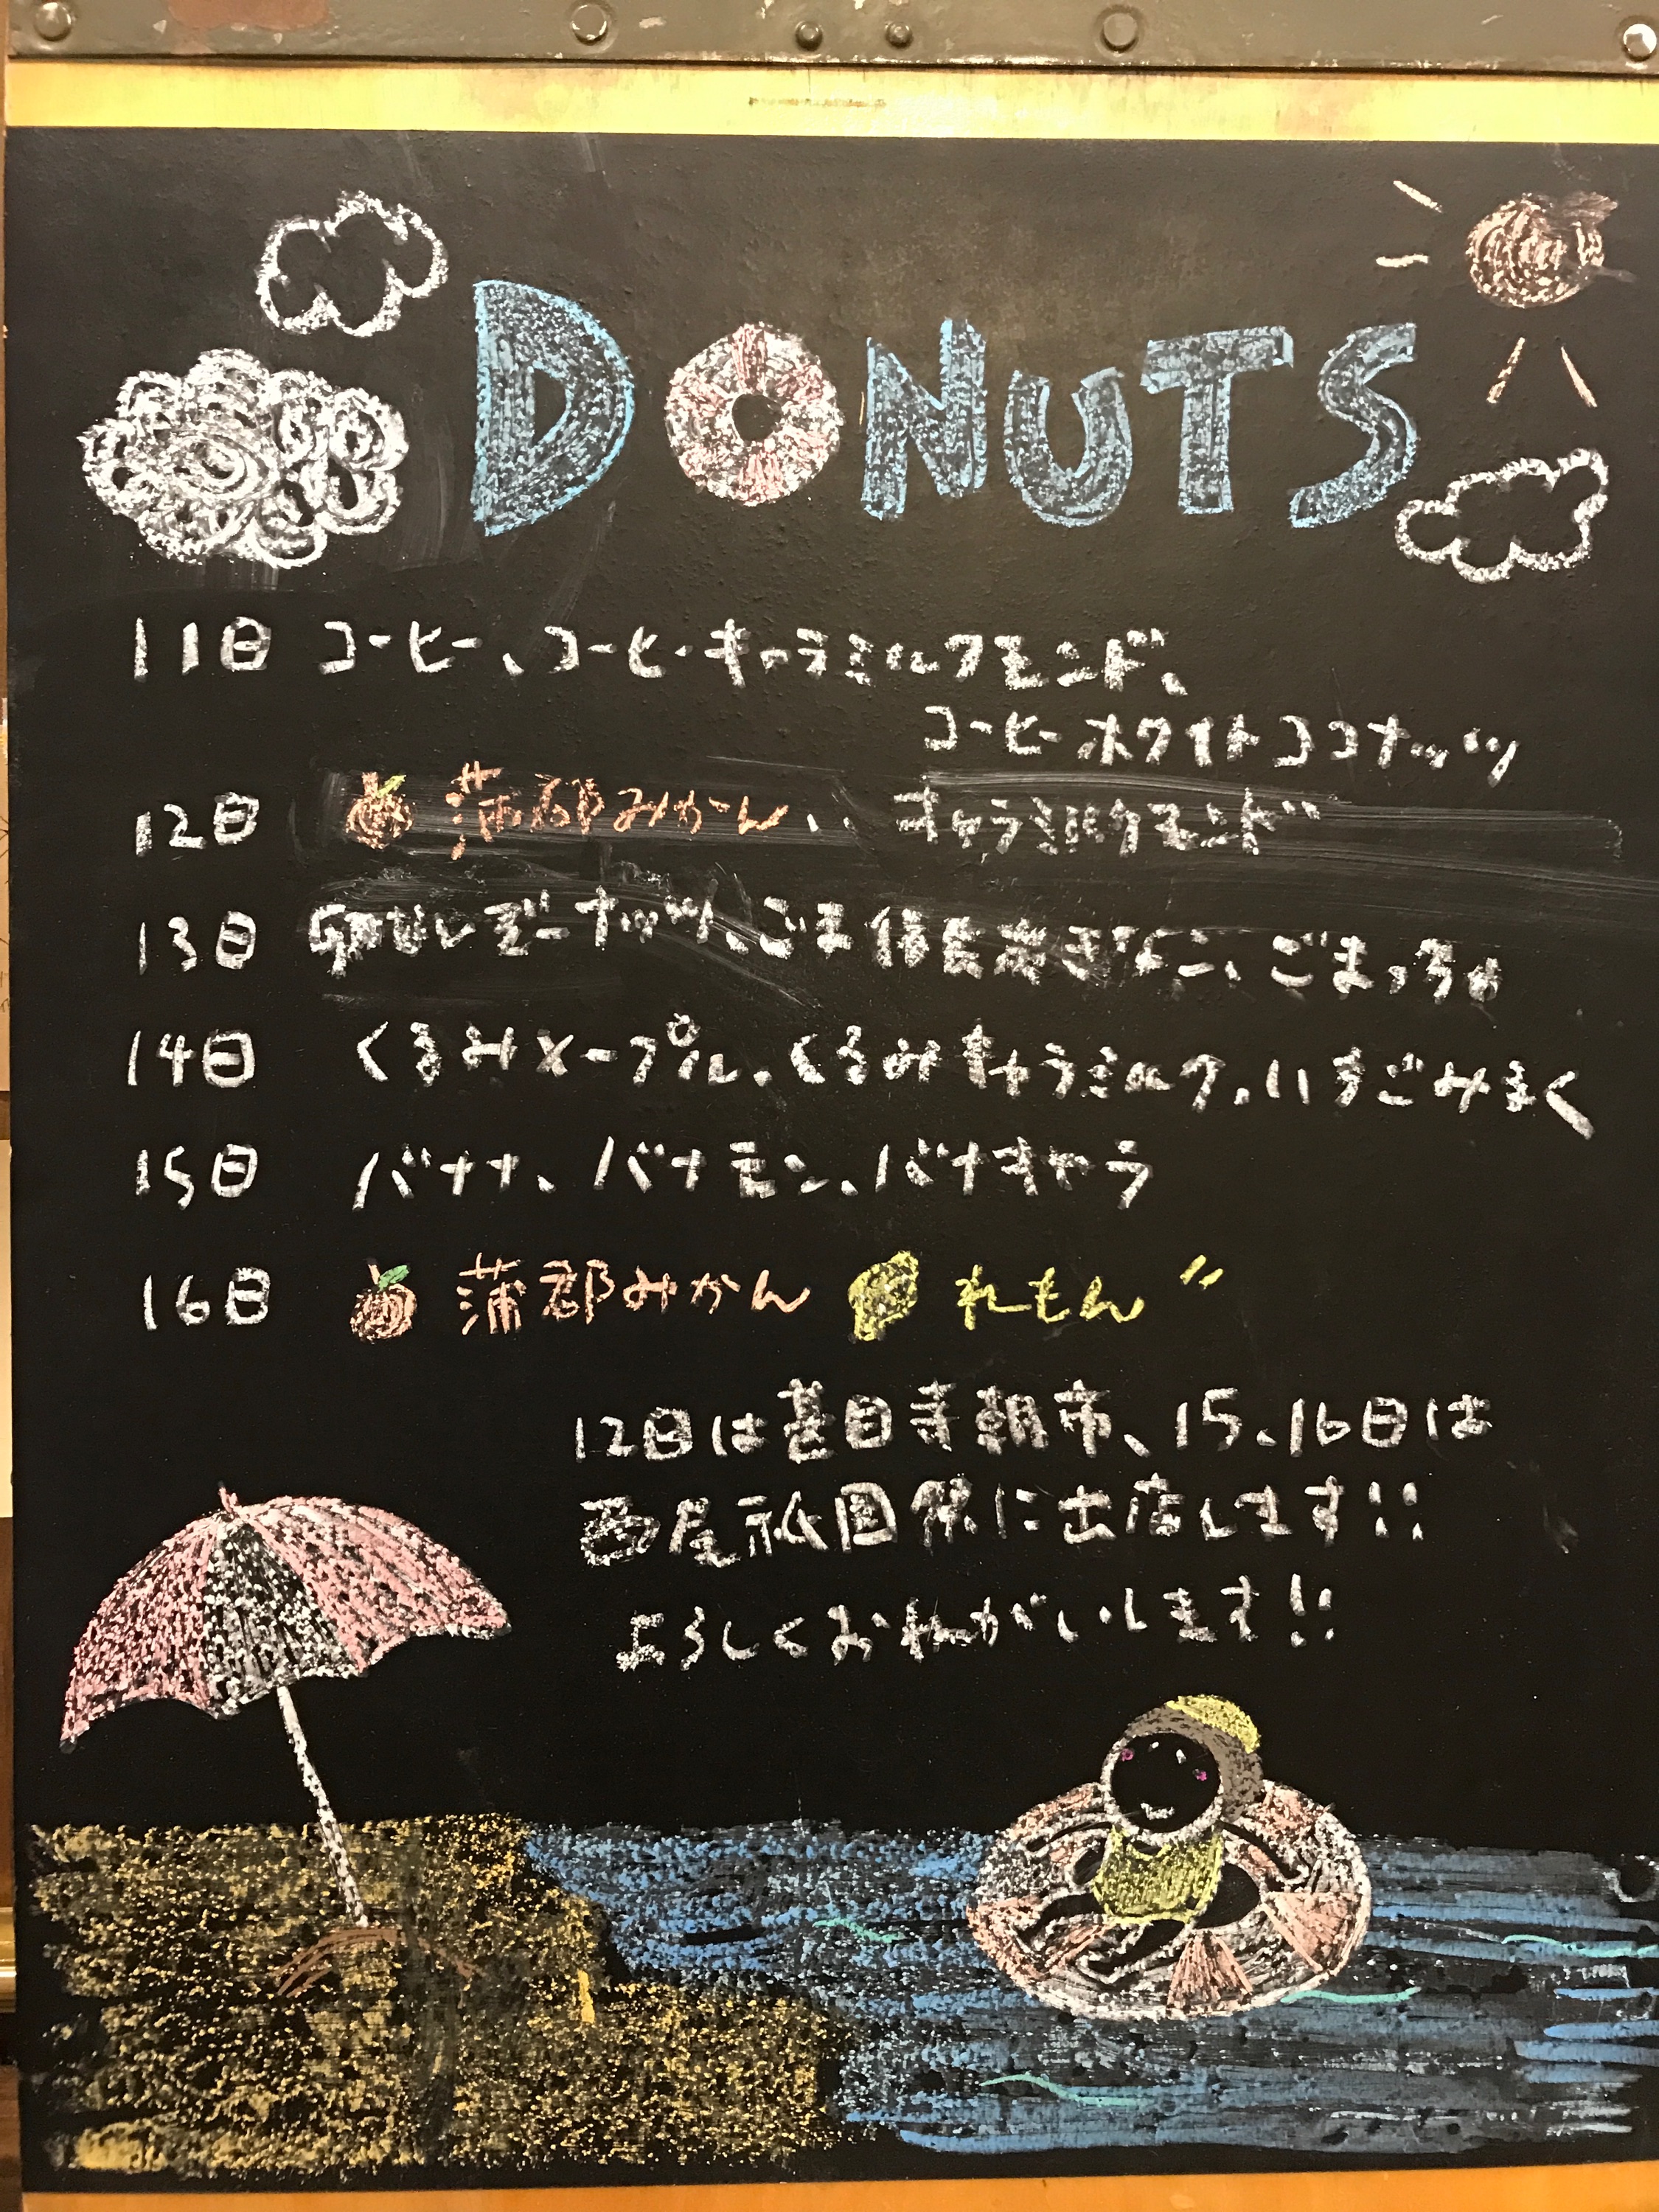 DONUTS
11日 コーヒー、コーヒーキャラミルクアモンド、
コーヒーホワイトココナッツ
12日 蒲郡みかん、、 キャラミルクアモンド
13日 卵なしピーナッツ、ごま きなこ、ごまっちゃ
14日 くるみメープル、くるみキャラミルク、いちごみるく
15日 バナナ、バナモン、バナキャラ
16日 蒲郡みかん れもん〃
12日は甚目寺朝市、15、16日は
西尾祇園祭に出店します!!
よろしくおねがいします!!